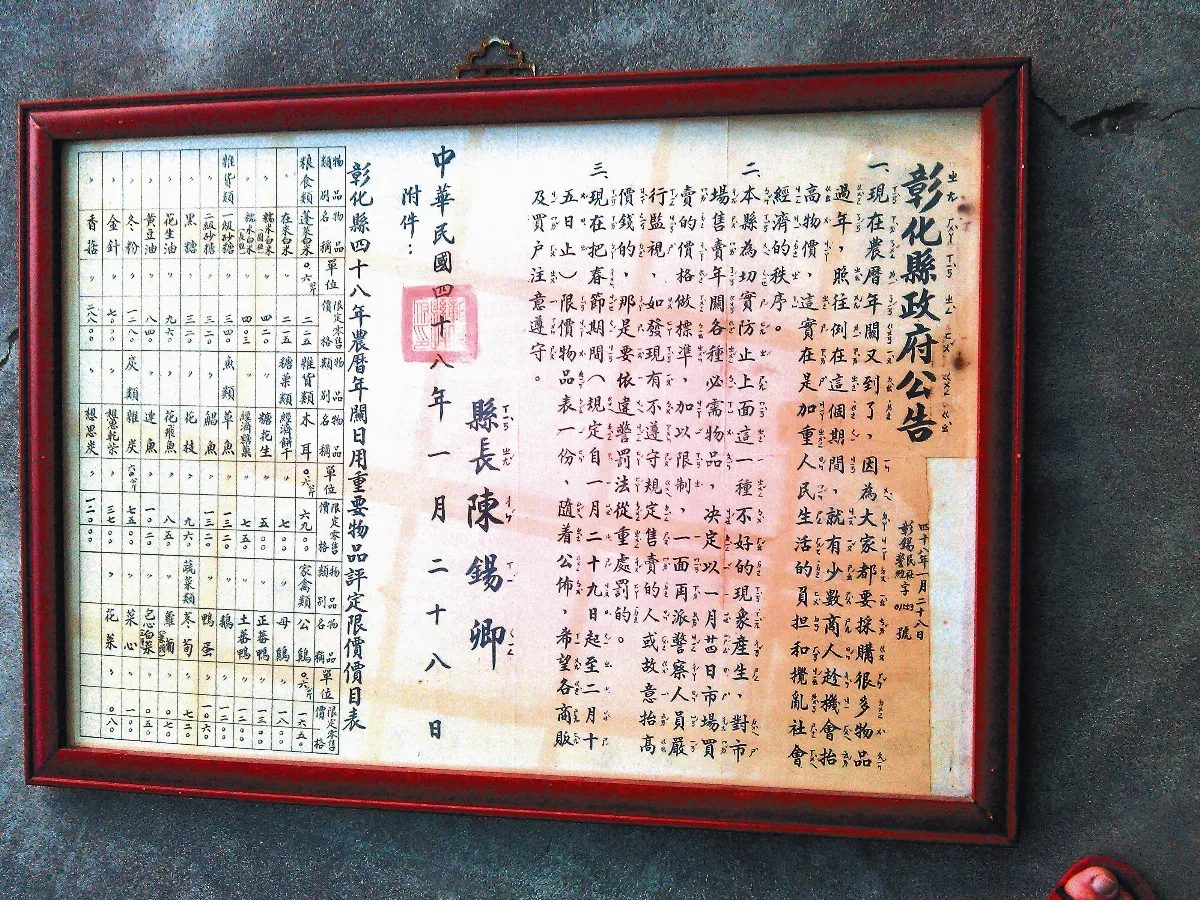 彰化縣政府公告
四十八年一月二十八日
彰錫民社字
號
一、現在農曆年關又到了，因為大家都要採購很多物品
過年，照往例在這個期間，就有少數商人趁機會抬
高物價，這實在是加重人民生活的負担和攪亂社會
經濟的秩序。
二、本縣為切實防止上面這一種不好的現象產生，對市
場售賣年關各種必需物品，決定以一月廿四日市場買
賣的價格做標準，加以限制，一面再派警察人員嚴
行監視，如發現有不遵守規定售賣的人或故意抬高
價錢的，那是要依違警罰法從重處罰的。
三、現在把春節期間（規定自一月二十九日起至二月十
五日止）限價物品表一份，隨着公佈，希望各商販
及買户注意遵守。
縣長陳錫卿
中華民國四十八年一月二十八日
附件：
彰化縣四十八年農曆年關日用重要物品評定限價價目表
物品類別 物品名稱 單位 限定零售價格 物品類別 物品名稱 單位 限定零售價格 物品類別 物品名稱 單位 限定零售價格
粮食類 蓬萊白米 〇.六公斤 二二五 雜貨類 木耳 〇.六公斤 六九〇〇 家禽類 公鷄 〇.六公斤 一六五〇
〃 在來白米 〃 二一五 糖菓類 經濟餅干 〃 七〇〇 〃 母鷄 〃 一八〇〇
〃 糯米白米 〃 四二〇 〃 糖花生 〃 五〇〇 〃 正蕃鴨 〃 一三〇〇
〃 糯米白米 〃 四〇三 〃 經濟糖菓 〃 七五〇 〃 土蕃鴨 〃 一二〇〇
雜貨類 一級砂糖 〃 三四〇 魚類 草魚 〃 一三〇〇 〃 鵝 〃 一二〇〇
〃 二級砂糖 〃 三二〇 〃 鯧魚 〃 一三〇〇 〃 鴨蛋 〃 一〇六〇
〃 黑糖 〃 三二〇 〃 花枝 〃 九六〇 蔬菜類 冬荀 〃 七二〇
〃 花生油 〃 九六〇 〃 花飛魚 〃 八五〇 〃 蘿蔔 〃 〇七〇
〃 黃豆油 〃 八四〇 〃 連魚 〃 一〇二〇 〃 包心白菜 〃 〇五〇
〃 冬粉 〃 一二八〇 炭類 雜炭 六〇公斤 七五〇〇 〃 菜心 〃 一〇〇
〃 金針 〃 七〇〇 〃 想思乾柴 〃 三七〇〇 〃 花菜 〃 〇八〇
〃 香菇 〃 二八〇〇 想思炭 〃 一二〇〇〇